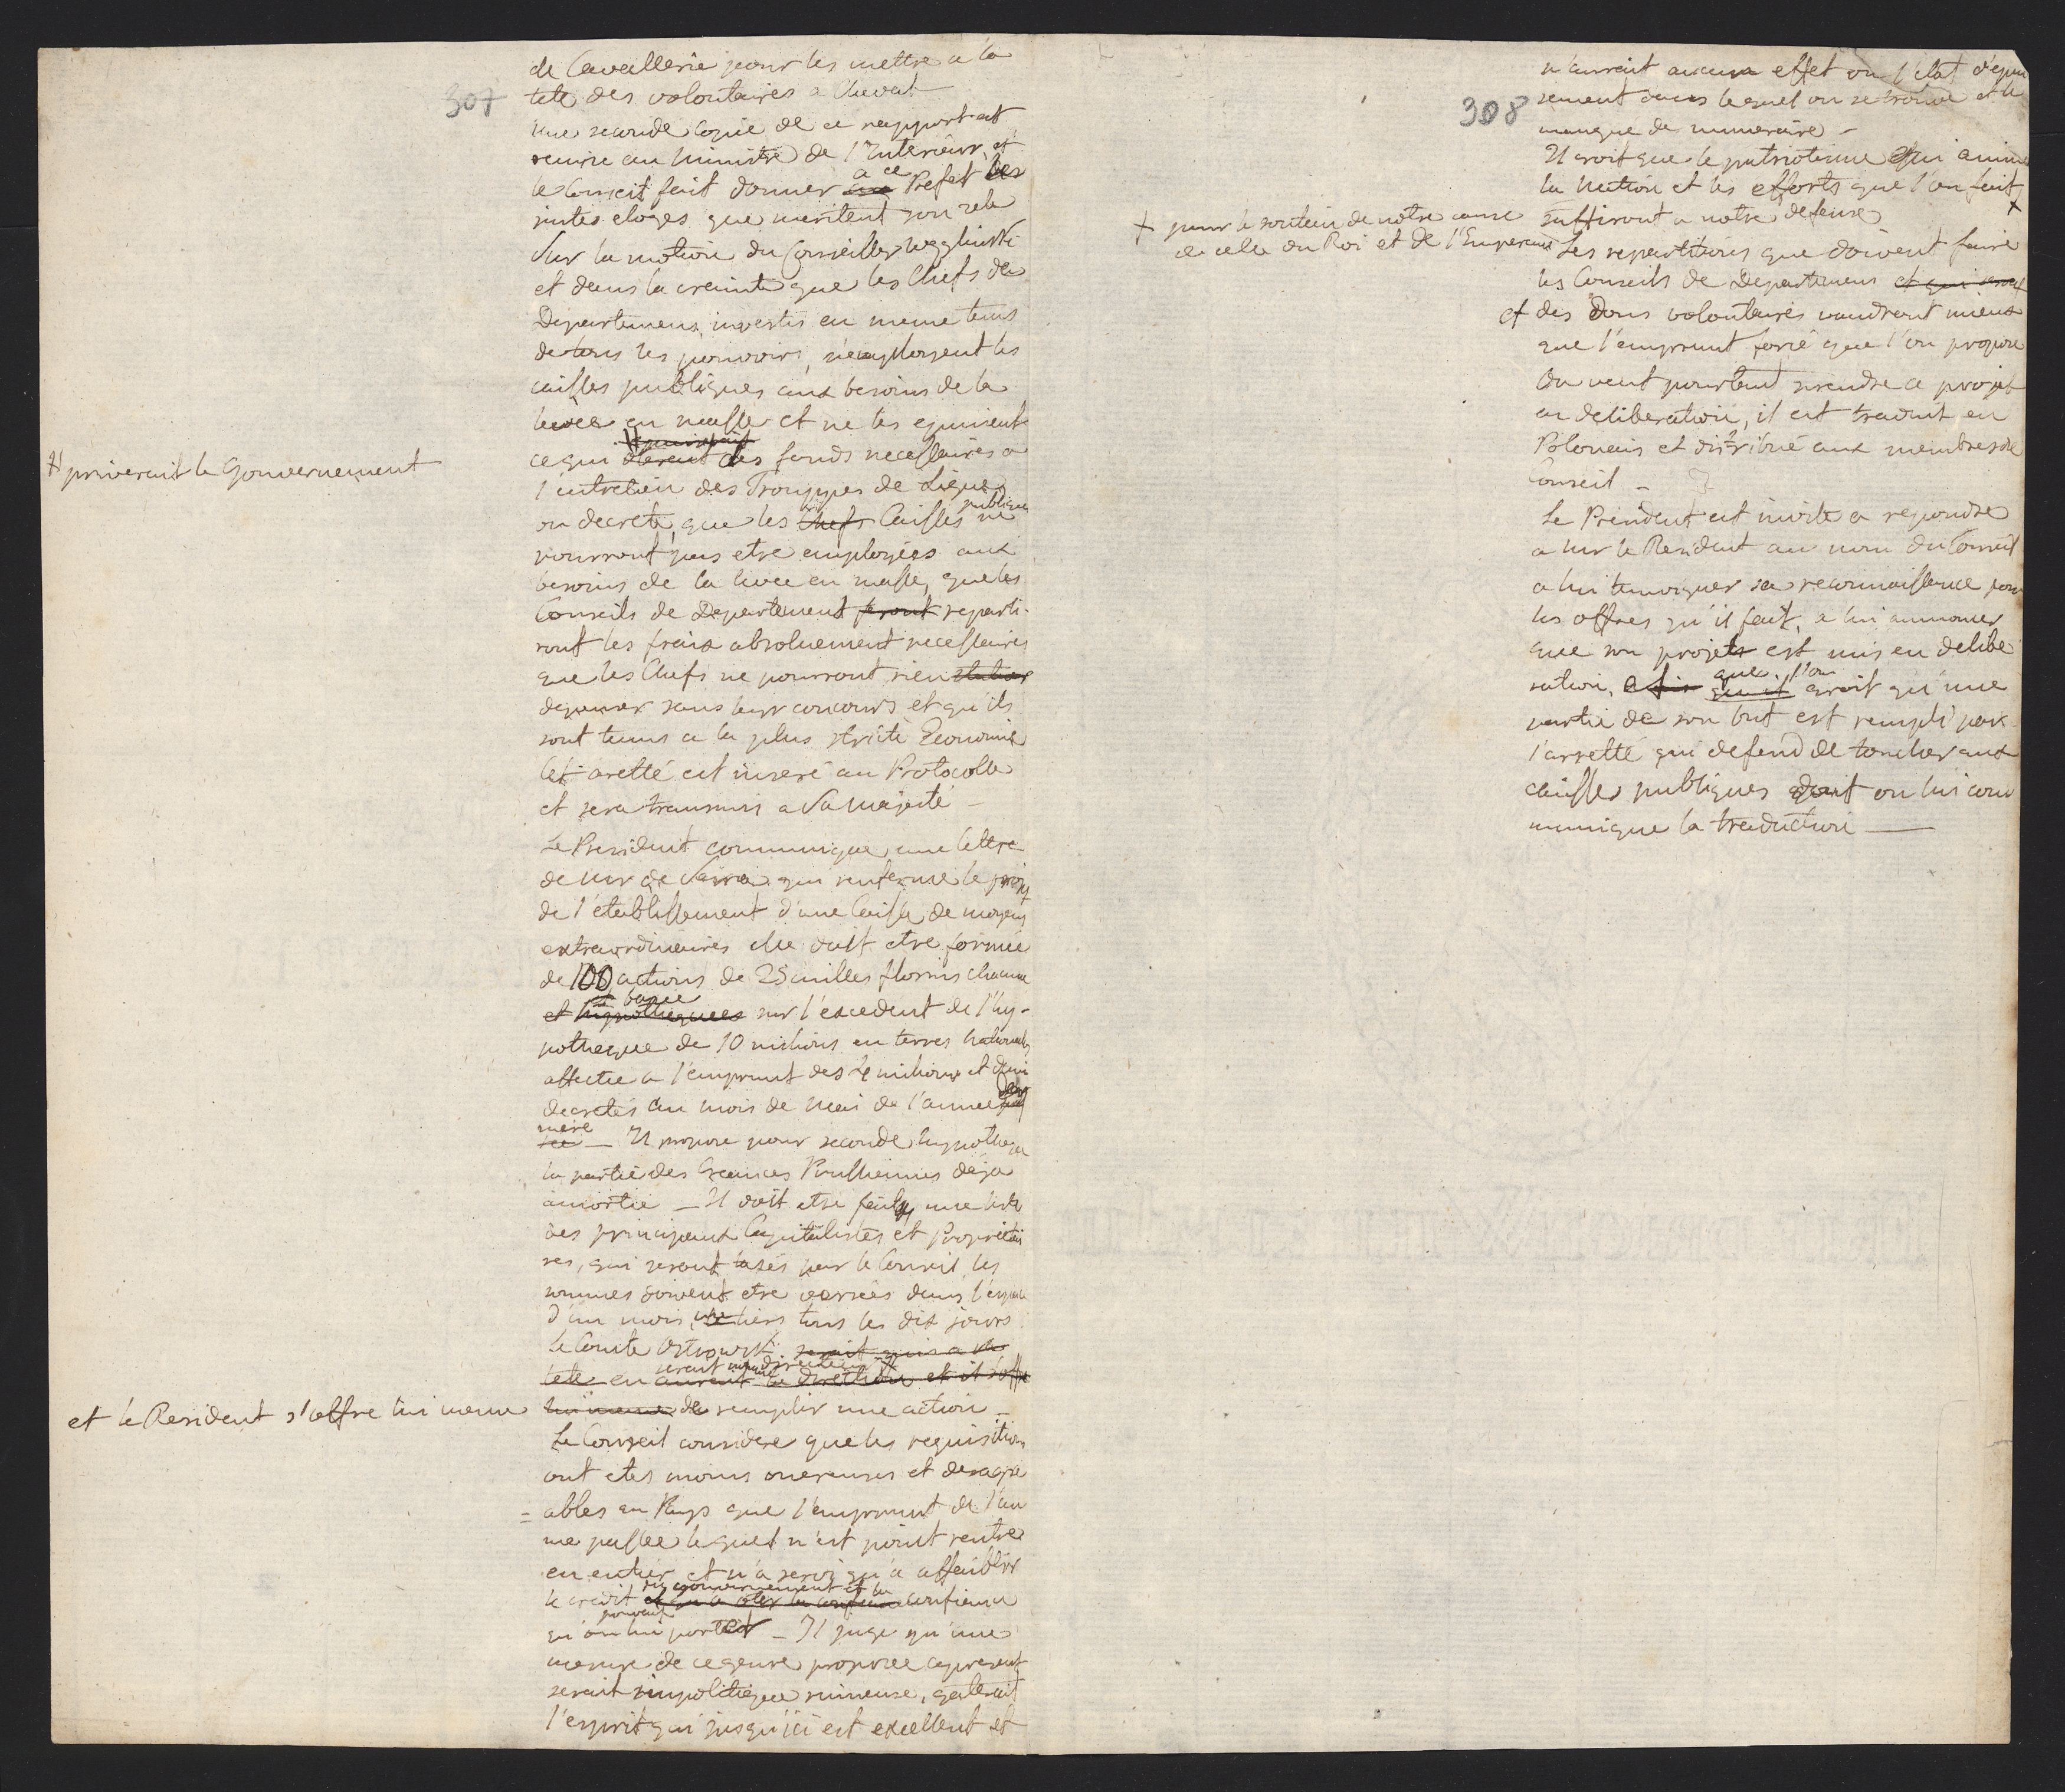 307
de Cavallerie pour les mettre a la
tete des volontaires a Cheval
une seconde copie de ce rapport est
remise au Ministre de l'Interieur, et
le Conseil fait donner a ce Prefet les
justes eloges que meritent son zele
Sur la motion du Conseiller Węgliński
et dans la crainte que les Chefs de
Departemens investis en meme tems
de tous les pouvoirs, n'employent les
caisses publiques aux besoins de la
levée en masse et ne les epuisent
ce qui ⌗ des fonds necessaires a
⌗ priverait le Gouvernement
l'entretien des Trouppes de Ligne
on decrete, que les Caisses publiques ne
pourront pas etre employées aux
besoins de la levée en masse, que les
Conseils de Departement reparti-
ront les fraix absoluement necessaires
que les Chefs ne pourront rien
depenser sans leur concours et qu'ils
sont tenus a la plus stricte Economie
Cet aretté est inseré au Protocolle
et sera transmis a Sa Majesté —
Le President communique une lettre
de Mr de Serra, qui renferme le projet
de l'etablissement d'une Caisse de moyens
extraordinaires elle doit etre formée
de 100 actions de 25 milles florins chacune
et basée sur l'excedent de l'hy-
potheque de 10 milions en terres Nationales
affectée a l'emprunt des 4 milions et demi
decretés au mois de Mai de l'année der
niere — Il propose pour seconde hypotheque
la partie des Creances Prussiennes deja
amortie — Il doit etre fait une liste
des principaux Capitalistes et Proprietai
res, qui seront taxés par le Conseil, les
sommes doivent etre versées dans l'espace
d'un mois, un tiers tous les dix jours
Le Comte Ostrowski
en serait nommé directeur
et le Resident s'offre lui meme de remplir une action —
Le Conseil considere que les requisitions
ont etes moins onereuses et desagre
= ables au Pays que l'emprunt de l'an
née passée lequel n'est point rentré
en entier et n'a servi qu'a affaiblir
le credit du gouvernement et la confiance
qu'on lui pouvait porter — Il juge qu'une
mesure de ce genre proposée apresent
serait impolitique ruineuse, gaterait
l'esprit qui jusqu'ici est excellent et
308
n'aurait aucun effet vu l'etat d'epui
sement dans lequel on se trouve et le
manque de numeraire —
Il croit que le patriotisme qui anime
la Nation et les efforts que l'on fait
+
+ pour le soutien de notre cause
de celle du Roi et de l'Empereur
suffiront a notre defense
Les repartitions que doivent faire
les Conseils de Departemens et qui seront
et des dons volontaires vaudront mieux
que l'emprunt forcé que l'on propose
On veut pourtant prendre ce projet
en deliberation, il est traduit en
Polonais et distribué aux membres du
Conseil —
Le President est invité a repondre
a Mr le Resident au nom du Conseil
a lui temoigner sa reconnaissance pour
les offres qu'il fait, a lui annoncer
que son projet est mis en delibe
ration, que l'on croit qu'une
partie de son but est rempli par
l'arretté qui defend de toucher aux
caisses publiques dont on lui com
munique la traduction —